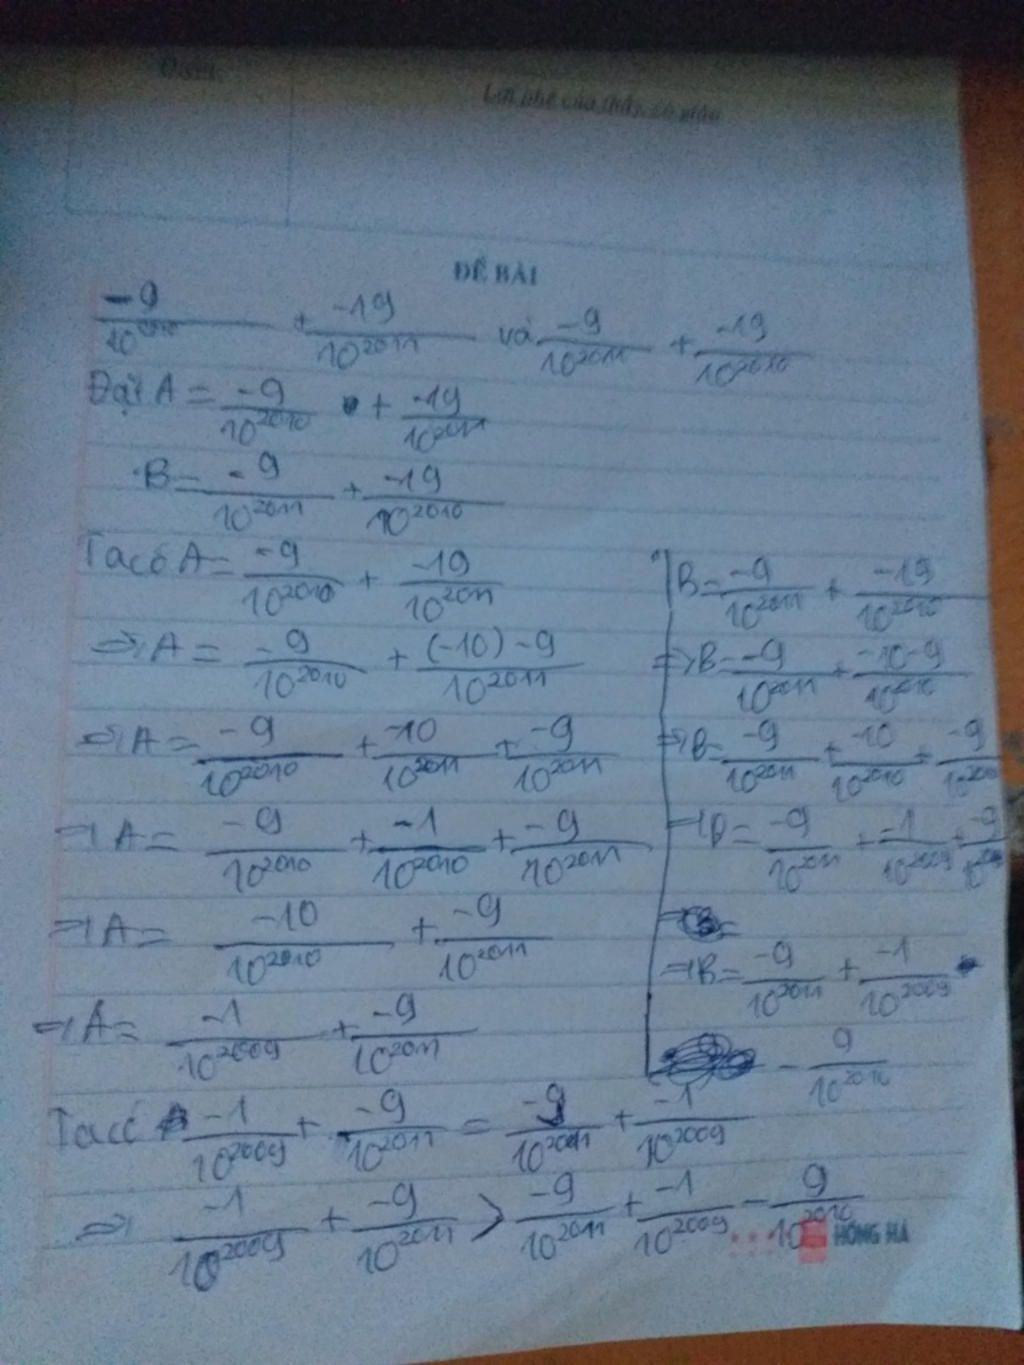 Lời phê của thầy, cô giáo
ĐỀ BÀI
-9/10^2010 + -19/10^2011 và -9/10^2011 + -19/10^2010
Đặt A = -9/10^2010 + -19/10^2011
B = -9/10^2011 + -19/10^2010
Ta có A = -9/10^2010 + -19/10^2011
=> A = -9/10^2010 + (-10)-9/10^2011
=> A = -9/10^2010 + -10/10^2011 + -9/10^2011
=> A = -9/10^2010 + -1/10^2010 + -9/10^2011
=> A = -10/10^2010 + -9/10^2011
=> A = -1/10^2009 + -9/10^2011
B = -9/10^2011 + -19/10^2010
=> B = -9/10^2011 + -10-9/10^2010
=> B = -9/10^2011 + -10/10^2010 + -9/10^2010
=> B = -9/10^2011 + -1/10^2009 + -9/10^2010
=> B = -9/10^2011 + -1/10^2009
- 9/10^2010
Ta có -1/10^2009 + -9/10^2011 = -9/10^2011 + -1/10^2009
=> -1/10^2009 + -9/10^2011 > -9/10^2011 + -1/10^2009 - 9/10^2010
HỒNG HÀ